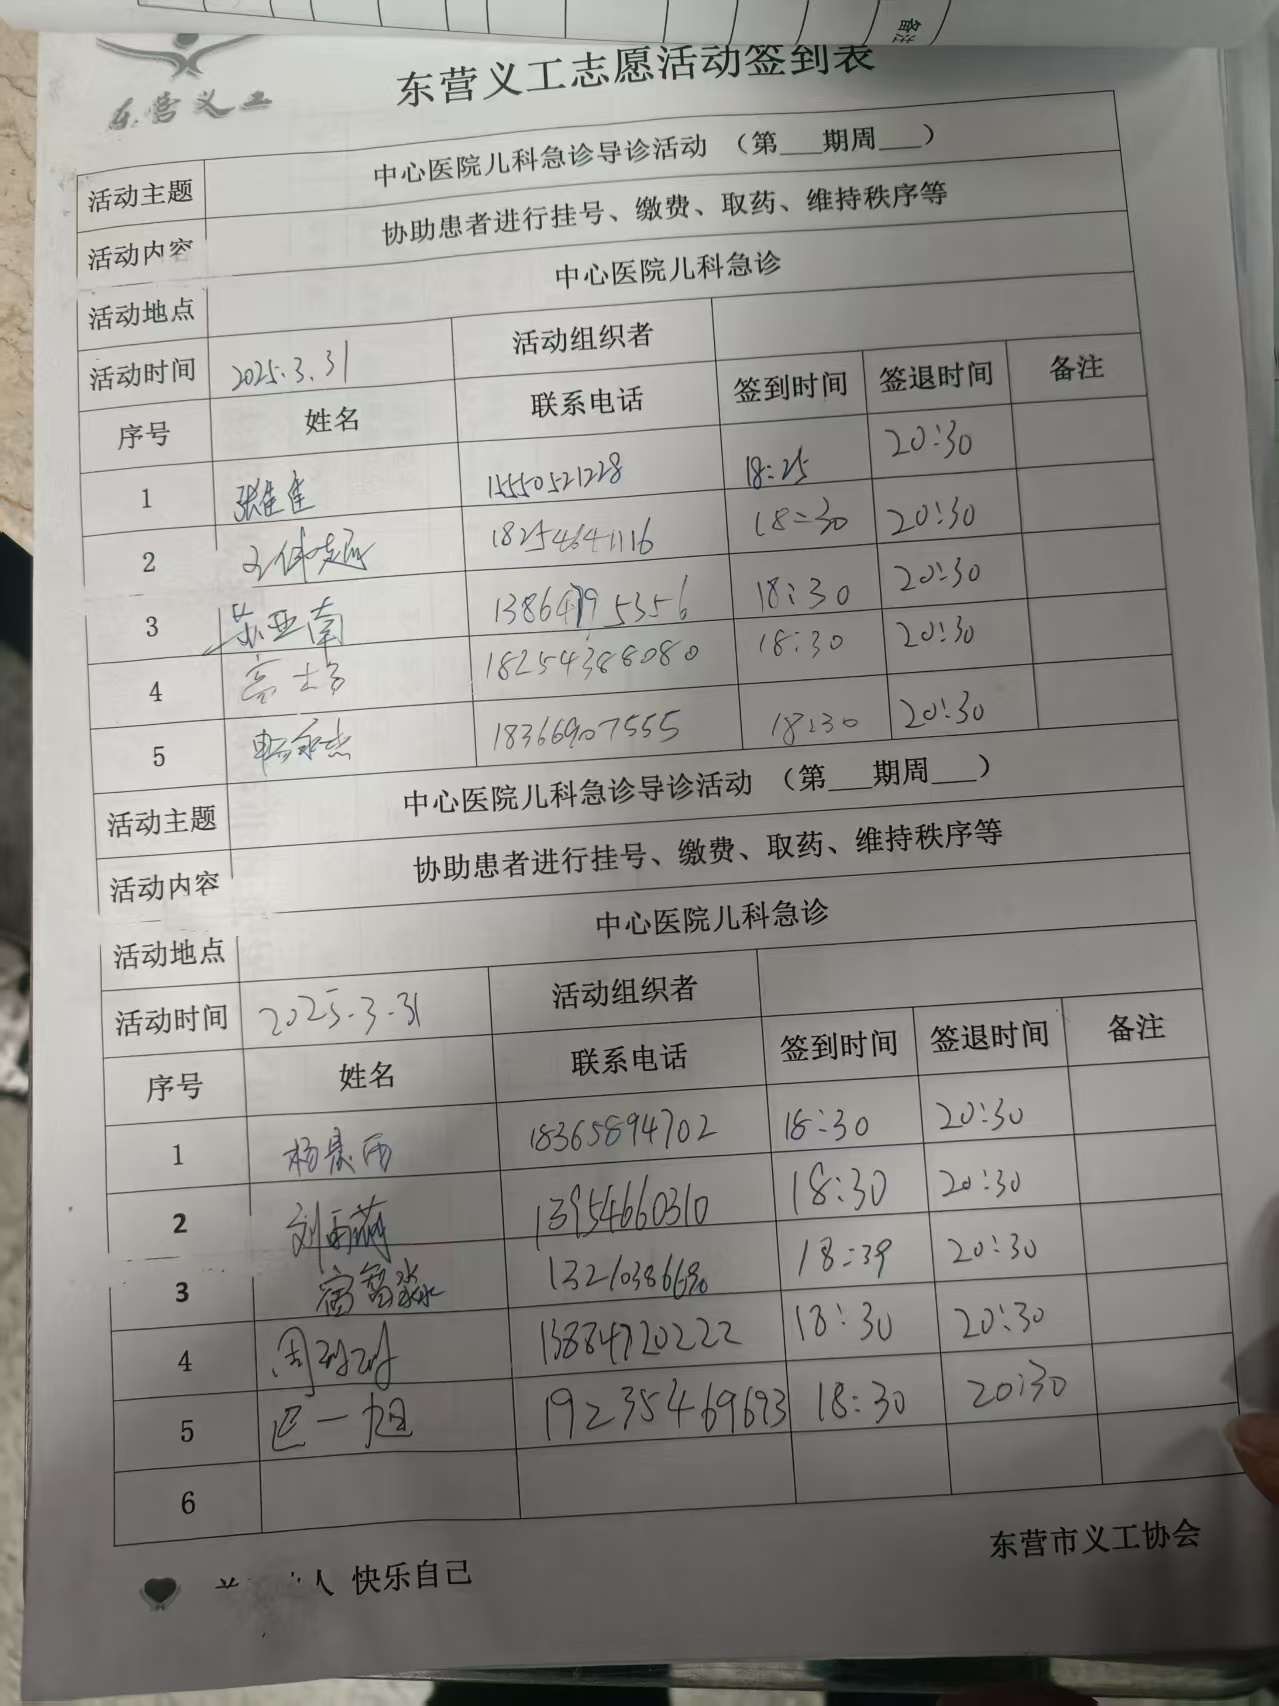 东营义工
东营义工志愿活动签到表
活动主题 中心医院儿科急诊导诊活动 （第___期周___）
活动内容 协助患者进行挂号、缴费、取药、维持秩序等
活动地点 中心医院儿科急诊
活动时间 2025.3.31 活动组织者
序号 姓名 联系电话 签到时间 签退时间 备注
1 张佳佳 15550521228 18:25 20:30
2 18254641116 18:30 20:30
3 苏亚南 13864795356 18:30 20:30
4 高士 18254388080 18:30 20:30
5 18366907555 18:30 20:30
活动主题 中心医院儿科急诊导诊活动 （第___期周___）
活动内容 协助患者进行挂号、缴费、取药、维持秩序等
活动地点 中心医院儿科急诊
活动时间 2025.3.31 活动组织者
序号 姓名 联系电话 签到时间 签退时间 备注
1 杨晨雨 18365894702 18:30 20:30
2 刘雨萌 13954660310 18:30 20:30
3 宿智淼 18:39 20:30
4 周 13884720222 18:30 20:30
5 一旭 192354 69693 18:30 20:30
6
人 快乐自己
东营市义工协会